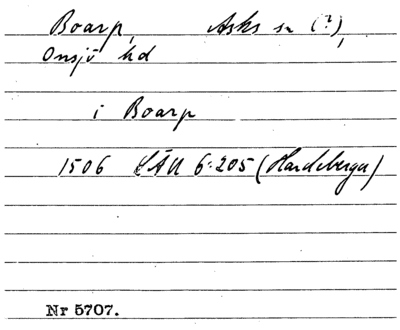 Boarp, Asks sn (?),
Onsjö hd
i Boarp
1506 LÄU 6:205 (Hardeberga)
Nr 5707.